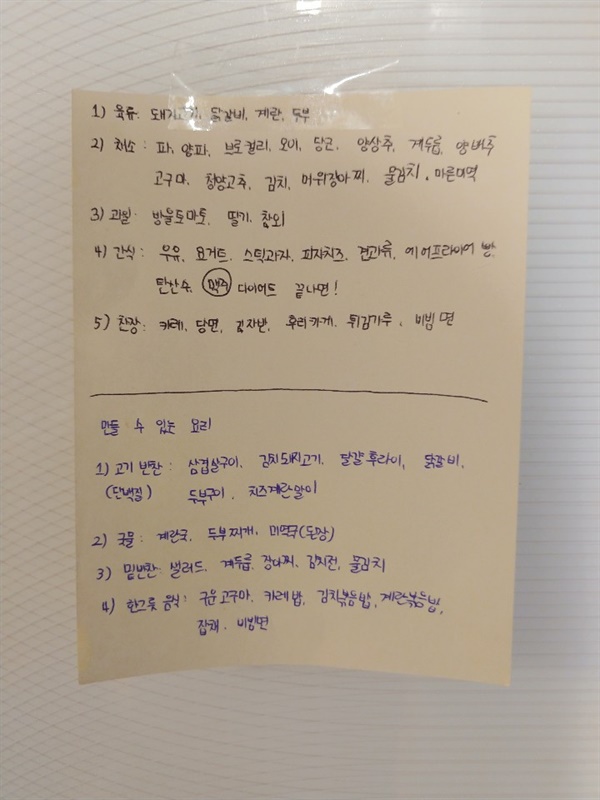 1) 육류: 돼지고기, 닭갈비, 계란, 두부
2) 채소 : 파, 양파, 브로컬리, 오이, 당근, 양상추, 계두릅, 양배추
고구마, 청양고추, 김치, 머위장아찌, 물김치, 마른미역
3) 과일: 방울토마토, 딸기, 참외
4) 간식: 우유, 요거트, 스틱과자, 피자치즈, 견과류, 에어프라이어 빵,
탄산수, 맥주 다이어트 끝나면!
5) 찬장: 카레, 당면, 김자반, 후리카게, 튀김가루, 비빔면
만들 수 있는 요리
1) 고기 반찬: 삼겹살구이, 김치돼지고기, 달걀후라이, 닭갈비,
(단백질) 두부구이, 치즈계란말이
2) 국물: 계란국, 두부찌개, 미역국(된장)
3) 밑반찬: 샐러드, 계두릅, 장아찌, 김치전, 물김치
4) 한그릇 음식: 구운고구마, 카레밥, 김치볶음밥, 계란볶음밥,
잡채, 비빔면